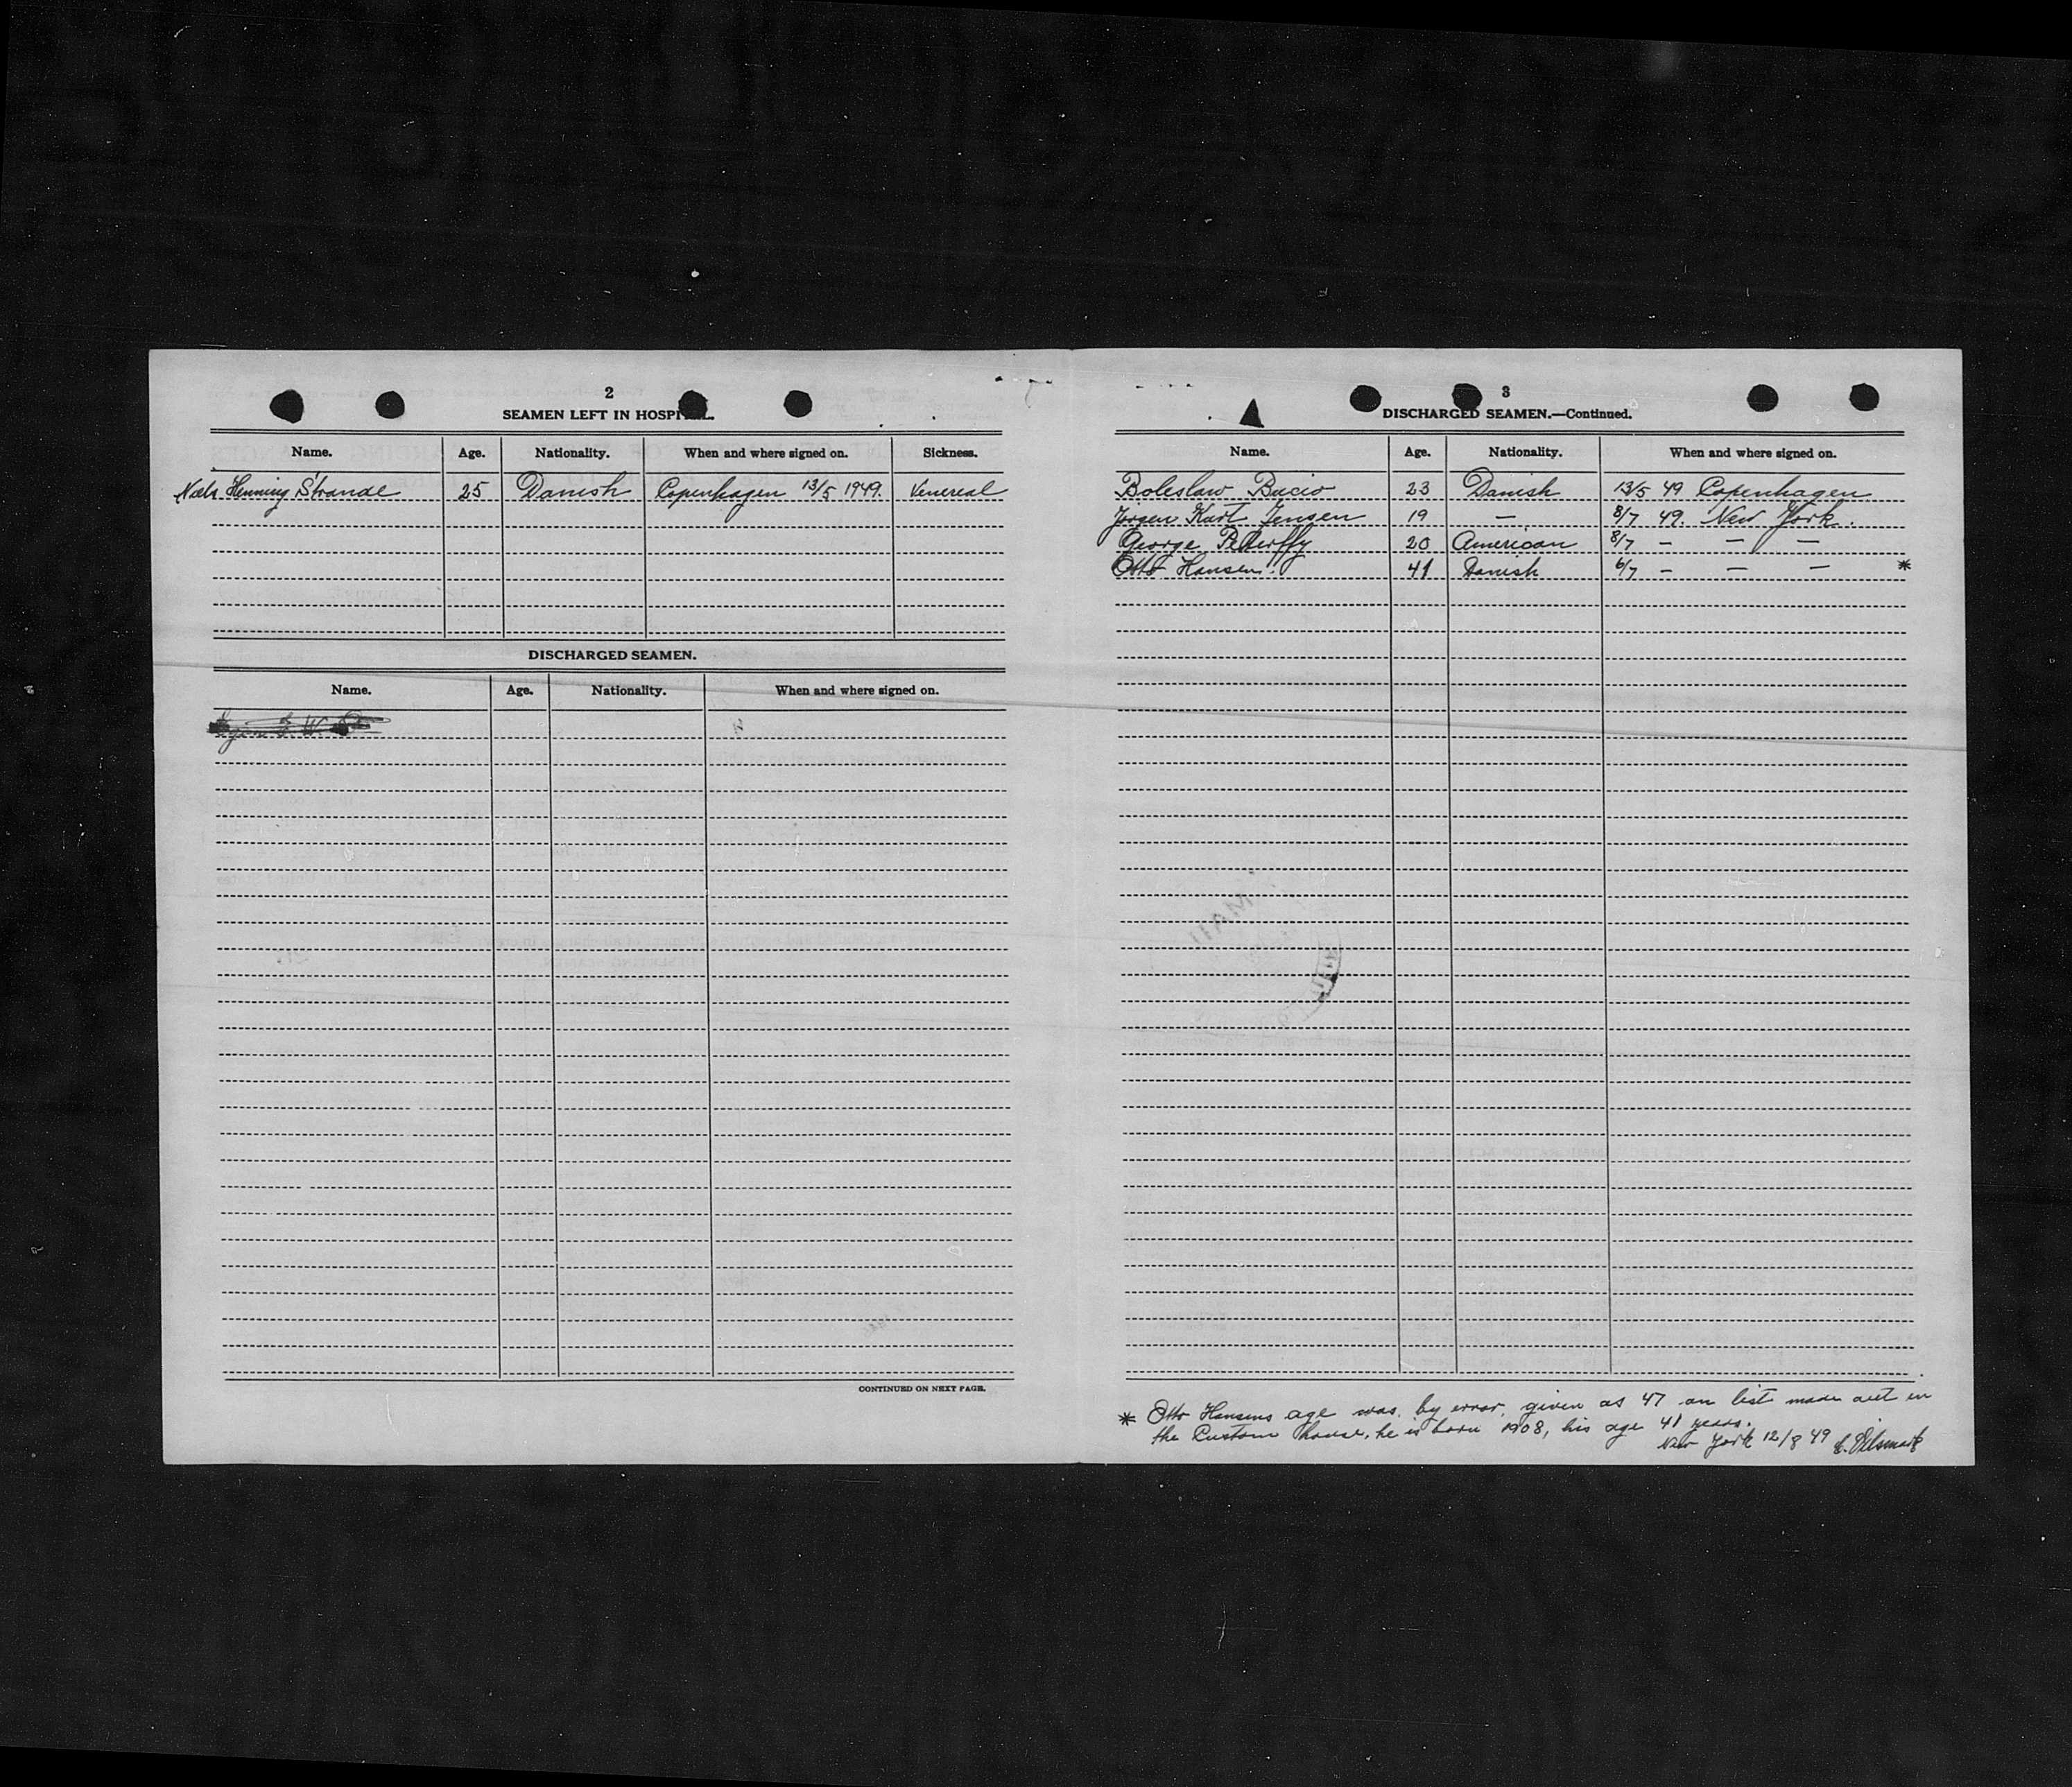 2
SEAMEN LEFT IN HOSPITAL.
Name. Age. Nationality. When and where signed on. Sickness.
Henning Strande 25 Danish Copenhagen 13/5 1949. Venereal
DISCHARGED SEAMEN.
Name. Age. Nationality. When and where signed on.
CONTINUED ON NEXT PAGE.
3
DISCHARGED SEAMEN.—Continued.
Name. Age. Nationality. When and where signed on.
Boleslaw Bucio 23 Danish 13/5 49 Copenhagen
Jörgen Kurt Jensen 19 — 8/7 49. New York.
George 20 American 8/7 — — —
Otto Hansen. 41 Danish 6/7 — — — *
* Otto Hansens age was, by error, given as 47 on list made out in
the Custom house, he is born 1908, his age 41 years.
New York 12/8 49